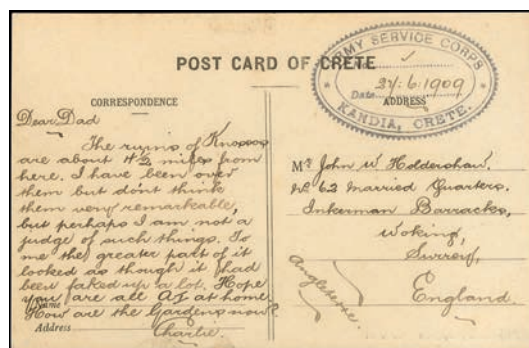 POST CARD OF CRETE
ARMY SERVICE CORPS
No.
Date 27.6.1909
KANDIA, CRETE.
CORRESPONDENCE
Dear Dad
The ruins of Knossos
are about 4½ miles from
here. I have been over
them but don't think
them very remarkable,
but perhaps I am not a
judge of such things. To
me the greater part of it
looked as though it had
been faked up a lot. Hope
you are all A1 at home
How are the Gardens now?
Name
Charlie.
Address
ADDRESS
Mr John W Holdershaw.
No 63 Married Quarters.
Inkerman Barracks,
Woking,
Surrey,
England.
Angleterre.